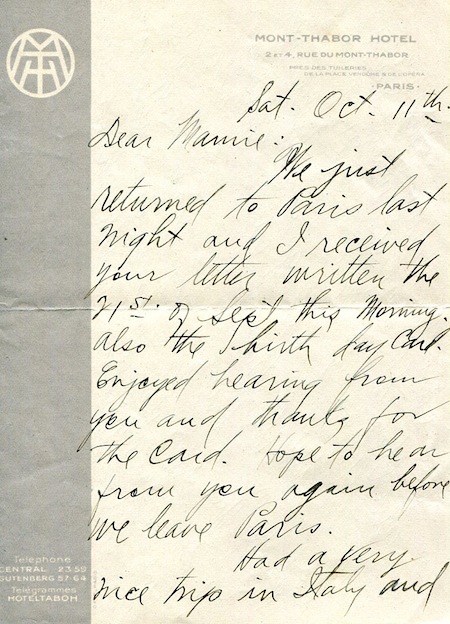 MONT-THABOR HOTEL
2 ET 4, RUE DU MONT-THABOR
PRÈS DES TUILERIES
DE LA PLACE VENDÔME & DE L'OPÉRA
·PARIS·
Sat. Oct. 11th.
Dear Mamie:
We just
returned to Paris last
night and I received
your letter written the
21st. of Sept this Morning.
also the birth day Card.
Enjoyed hearing from
you and thanks for
the Card. Hope to hear
from you again before
we leave Paris.
Had a very
nice trip in Italy and
Téléphone
CENTRAL 23 59
GUTENBERG 57-64
Télégrammes
HOTELTABOH